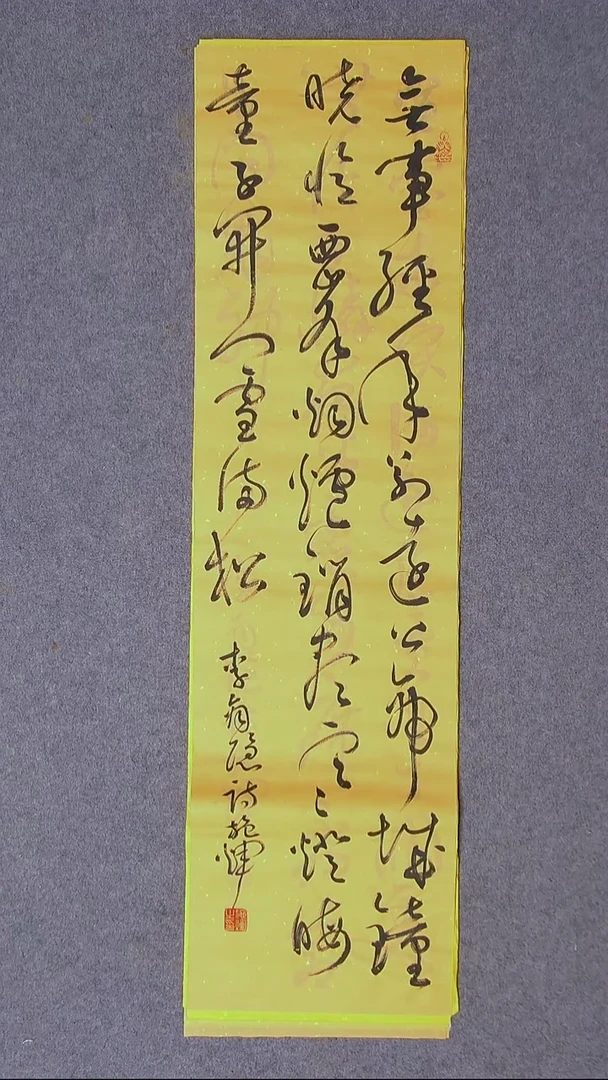 無事經年別遠公帝城鐘
曉憶西峯烟爐銷盡寒燈晦
童子開門雪滿松
李商隱詩施輝